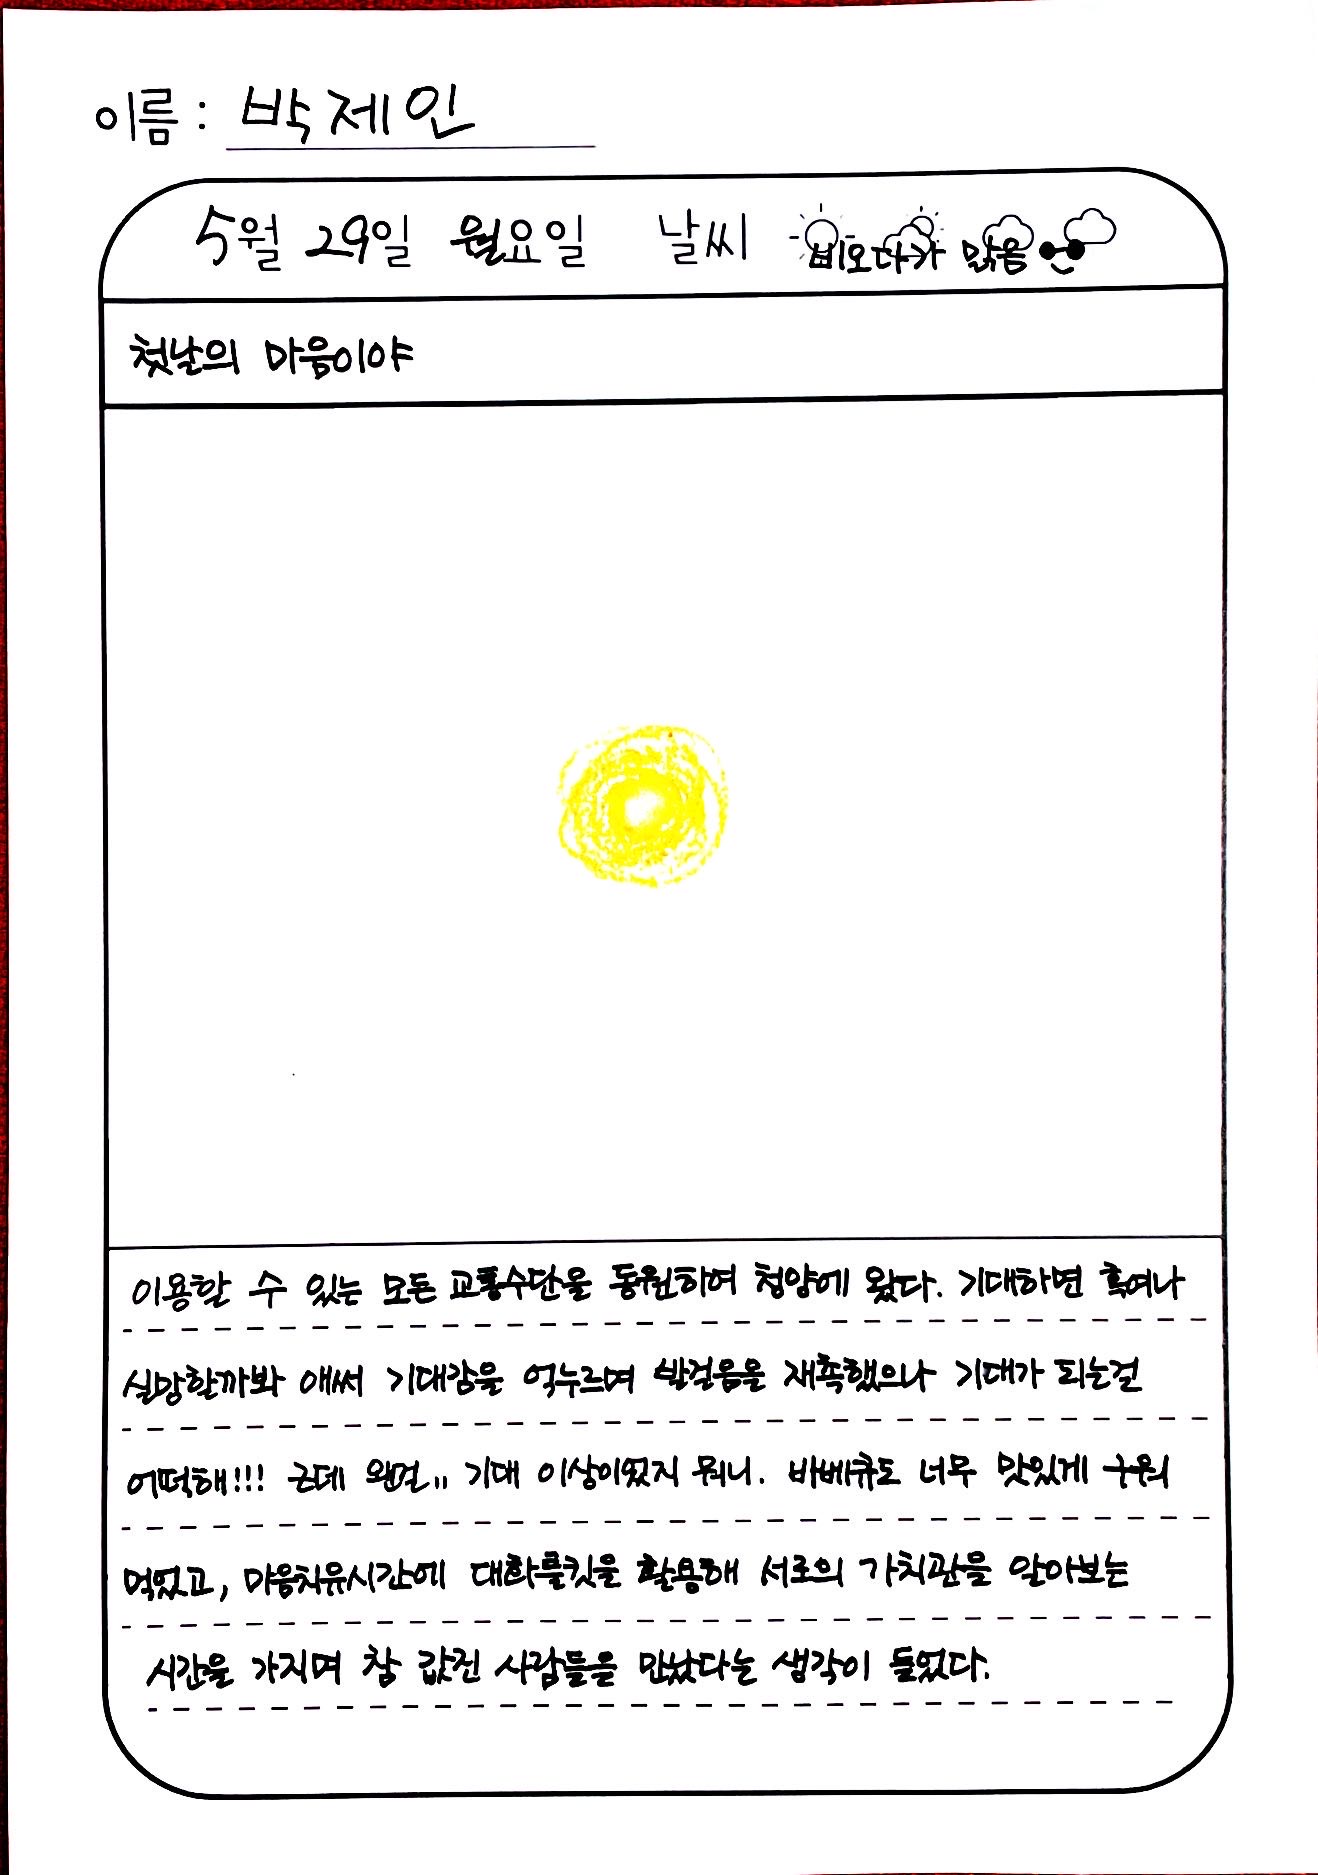 이름 : 박제인
5월 29일 월요일 날씨 비오다가 맑음
첫날의 마음이야
이용할 수 있는 모든 교통수단을 동원하여 청양에 왔다. 기대하면 혹여나
실망할까봐 애써 기대감을 억누르며 발걸음을 재촉했으나 기대가 되는걸
어떡해!!! 근데 왠걸,,, 기대 이상이었지 뭐니. 바베큐도 너무 맛있게 구워
먹었고, 마음치유시간에 대화툴킷을 활용해 서로의 가치관을 알아보는
시간을 가지며 참 값진 사람들을 만났다는 생각이 들었다.